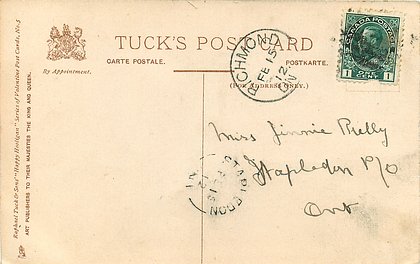 TUCK'S POST CARD
CARTE POSTALE.
POSTKARTE.
By Appointment.
(FOR ADDRESS ONLY.)
Raphael Tuck & Sons' "Happy Hooligan" Series of Valentine Post Cards, No. 5
ART PUBLISHERS TO THEIR MAJESTIES THE KING AND QUEEN.
RICHMOND
FE 15
12
ONT
CANADA POSTAGE
1 CENT 1
Miss Jinnie Reilly
Stapledon P/O
Ont
STAPLEDON
FE 15
12